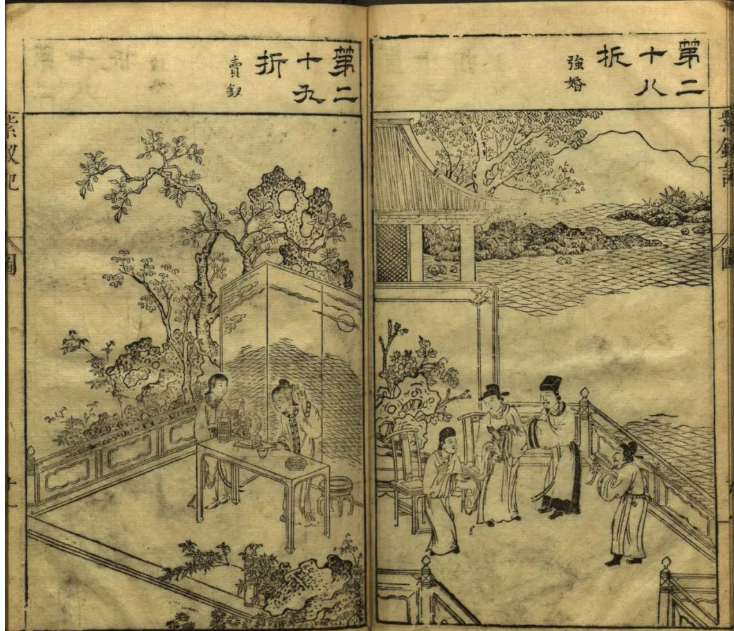 第二
十八
折
強婚
第二
十九
折
賣釵
紫釵記
圖